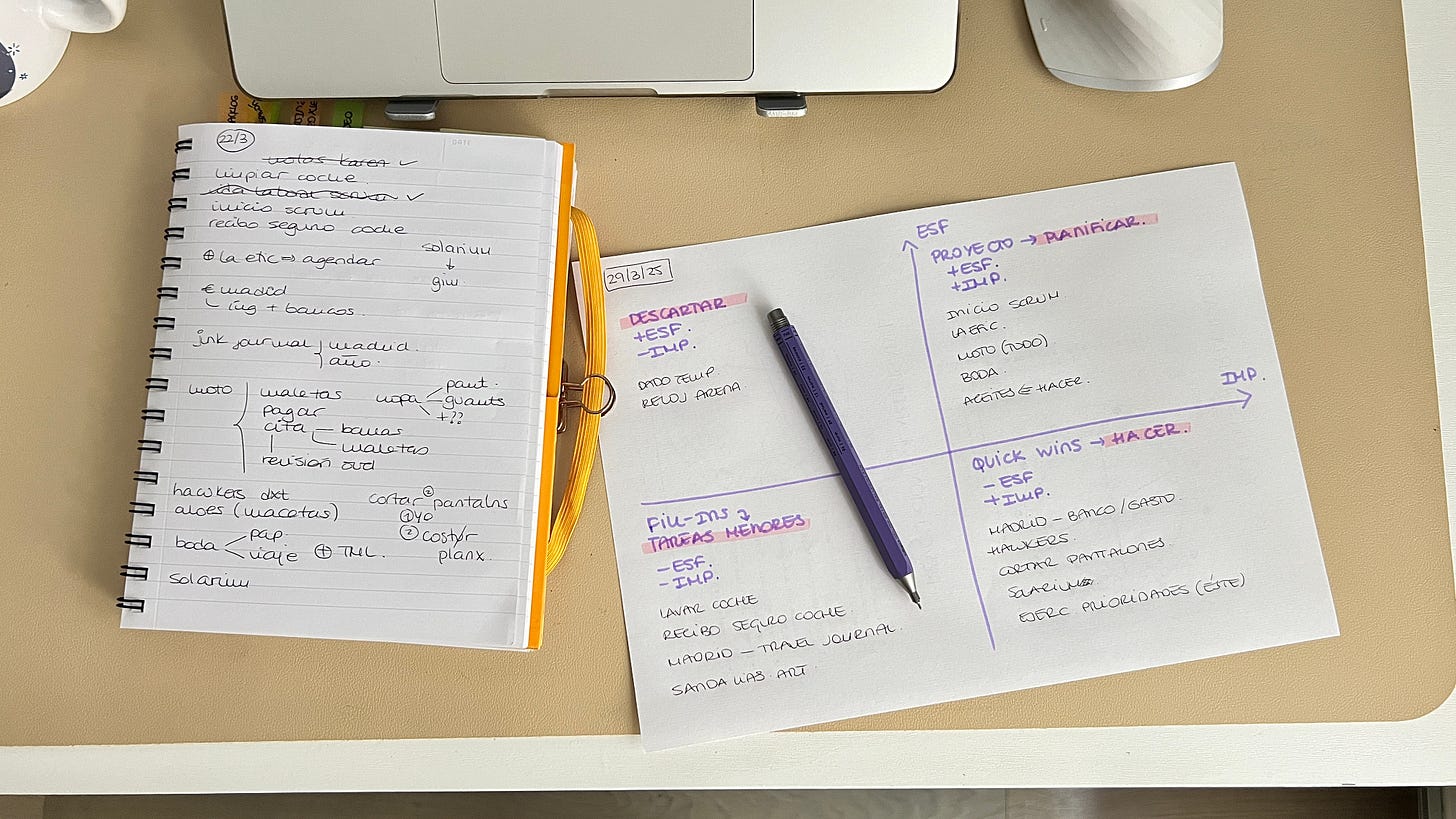 22/3
notas Karen ✓
limpiar coche
✓
inicio scrum
recibo seguro coche
⊕ la etic ⇒ agendar
solarium
↓
giw.
€ madrid
ing + bancos.
ink journal
madrid.
año.
moto
maletas
pagar
cita — barras
maletas
revisión ovd
ropa
pant.
guants
+??
hawkers dxt
aloes (macetas)
cortar pantalns
① yo
② cost/r
planx.
boda
pap.
viaje
⊕ TML.
solarium
DATE
29/3/25
DESCARTAR
+ESF.
-IMP.
DADO TEMP.
RELOJ ARENA.
ESF
PROYECTO → PLANIFICAR.
+ESF.
+IMP.
INICIO SCRUM.
LA ETIC.
MOTO (TODO)
BODA.
ACEITES ∈ HACER.
IMP.
FILL-INS
TAREAS MENORES
-ESF.
-IMP.
LAVAR COCHE
RECIBO SEGURO COCHE.
MADRID — TRAVEL JOURNAL.
SANDA ART.
QUICK WINS → HACER.
- ESF
+IMP.
MADRID — BANCO/GASTO.
HAWKERS.
CORTAR PANTALONES.
SOLARIUM
EJERC PRIORIDADES (ÉSTE)